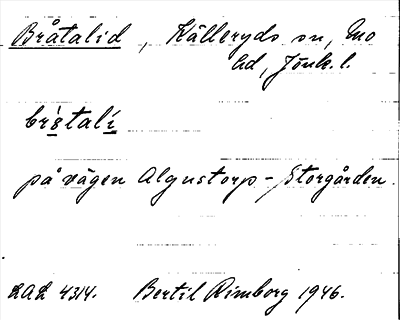 Bråtalid, Källeryds sn, Mo
hd, Jönk. l.
br8̲talí̲
på vägen Algustorp - Storgården.
LAL 4314. Bertil Rimborg 1946.